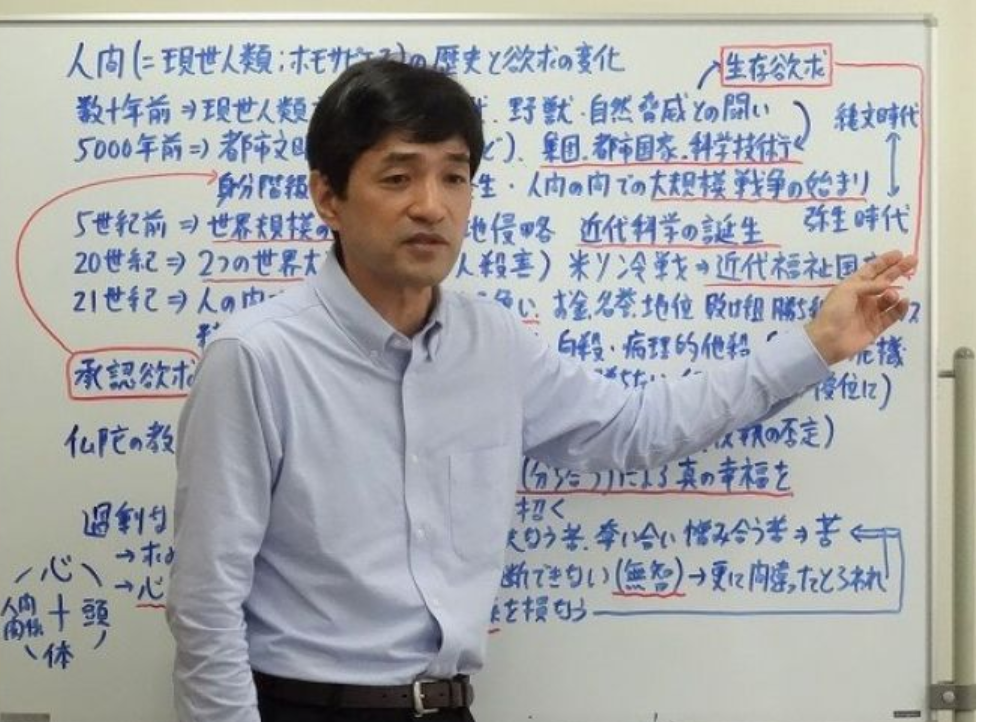 人間(=現世人類;ホモサピエンス)の歴史と欲求の変化
生存欲求
数十年前⇒現世人類 野獣・自然脅威との闘い
縄文時代
5000年前⇒都市文明 ど). 集団.都市国家.科学技術
身分階級 生・人間の間での大規模戦争の始まり
弥生時代
5世紀前⇒世界規模の 地侵略 近代科学の誕生
20世紀⇒2つの世界大 人殺害)米ソ冷戦→近代福祉国
21世紀⇒人の内 争い.お金.名誉.地位 敗け組 勝ち ス
自殺・病理的他殺 危機
承認欲求
勝ちたい 優位に)
仏陀の教 の否定)
(分ち合う)による真の幸福を
招く
過剰な
う苦.奪い合い憎み合う苦⇒苦
→求め
断できない(無智)→更に間違ったとらわれ
→心
を損なう
心
人間関係 + 頭
体